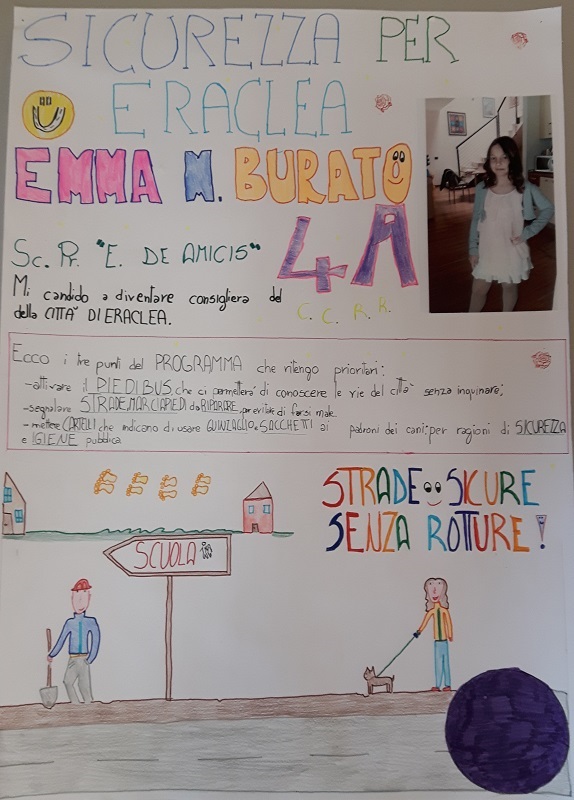 SICUREZZA PER
ERACLEA
EMMA M. BURATO
4A
Sc. Pr. "E. DE AMICIS"
Mi candido a diventare consigliera del C. C. R. R.
della CITTA' DI ERACLEA.
Ecco i tre punti del PROGRAMMA che ritengo prioritari:
-attivare il PIEDIBUS, che ci permetterà di conoscere le vie del città senza inquinare;
-segnalare STRADE, MARCIAPIEDI da RIPARARE, per evitare di farsi male.
-mettere CARTELLI che indicano di usare GUINZAGLIO e SACCHETTI ai padroni dei cani: per ragioni di SICUREZZA
e IGIENE pubblica
STRADE SICURE
SENZA ROTTURE!
SCUOLA